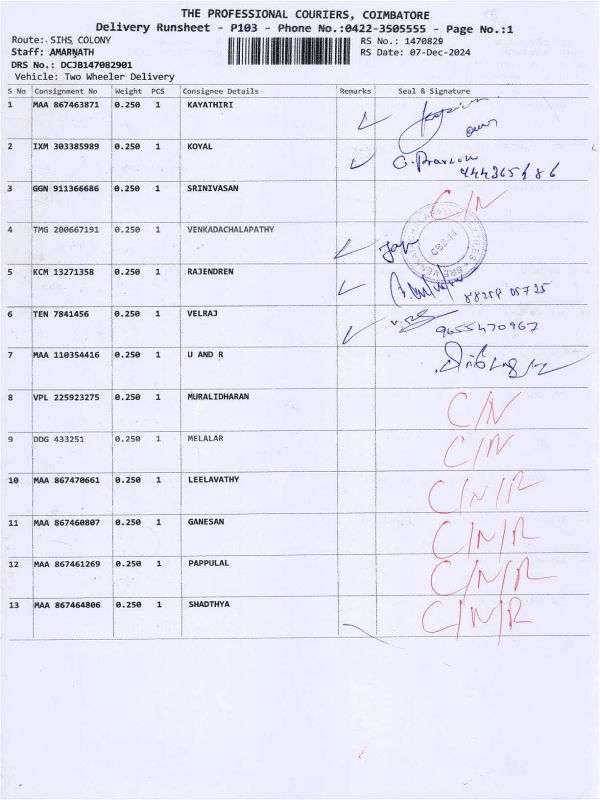 THE PROFESSIONAL COURIERS, COIMBATORE
Delivery Runsheet - P103 - Phone No.:0422-3505555 - Page No.:1
Route: SIHS COLONY RS No.: 1470829
Staff: AMARNATH RS Date: 07-Dec-2024
DRS No.: DCJB147082901
Vehicle: Two Wheeler Delivery
S No Consignment No Weight PCS Consignee Details Remarks Seal & Signature
1 MAA 867463871 0.250 1 KAYATHIRI
2 IXM 303385989 0.250 1 KOYAL
3 GGN 911366686 0.250 1 SRINIVASAN C/N
4 TMG 200667191 0.250 1 VENKADACHALAPATHY
5 KCM 13271358 0.250 1 RAJENDREN
6 TEN 7841456 0.250 1 VELRAJ 9655470967
7 MAA 110354416 0.250 1 U AND R
8 VPL 225923275 0.250 1 MURALIDHARAN C/N
9 DDG 433251 0.250 1 MELALAR C/N
10 MAA 867470661 0.250 1 LEELAVATHY C/N/R
11 MAA 867460807 0.250 1 GANESAN C/N/R
12 MAA 867461269 0.250 1 PAPPULAL C/N/R
13 MAA 867464806 0.250 1 SHADTHYA C/N/R